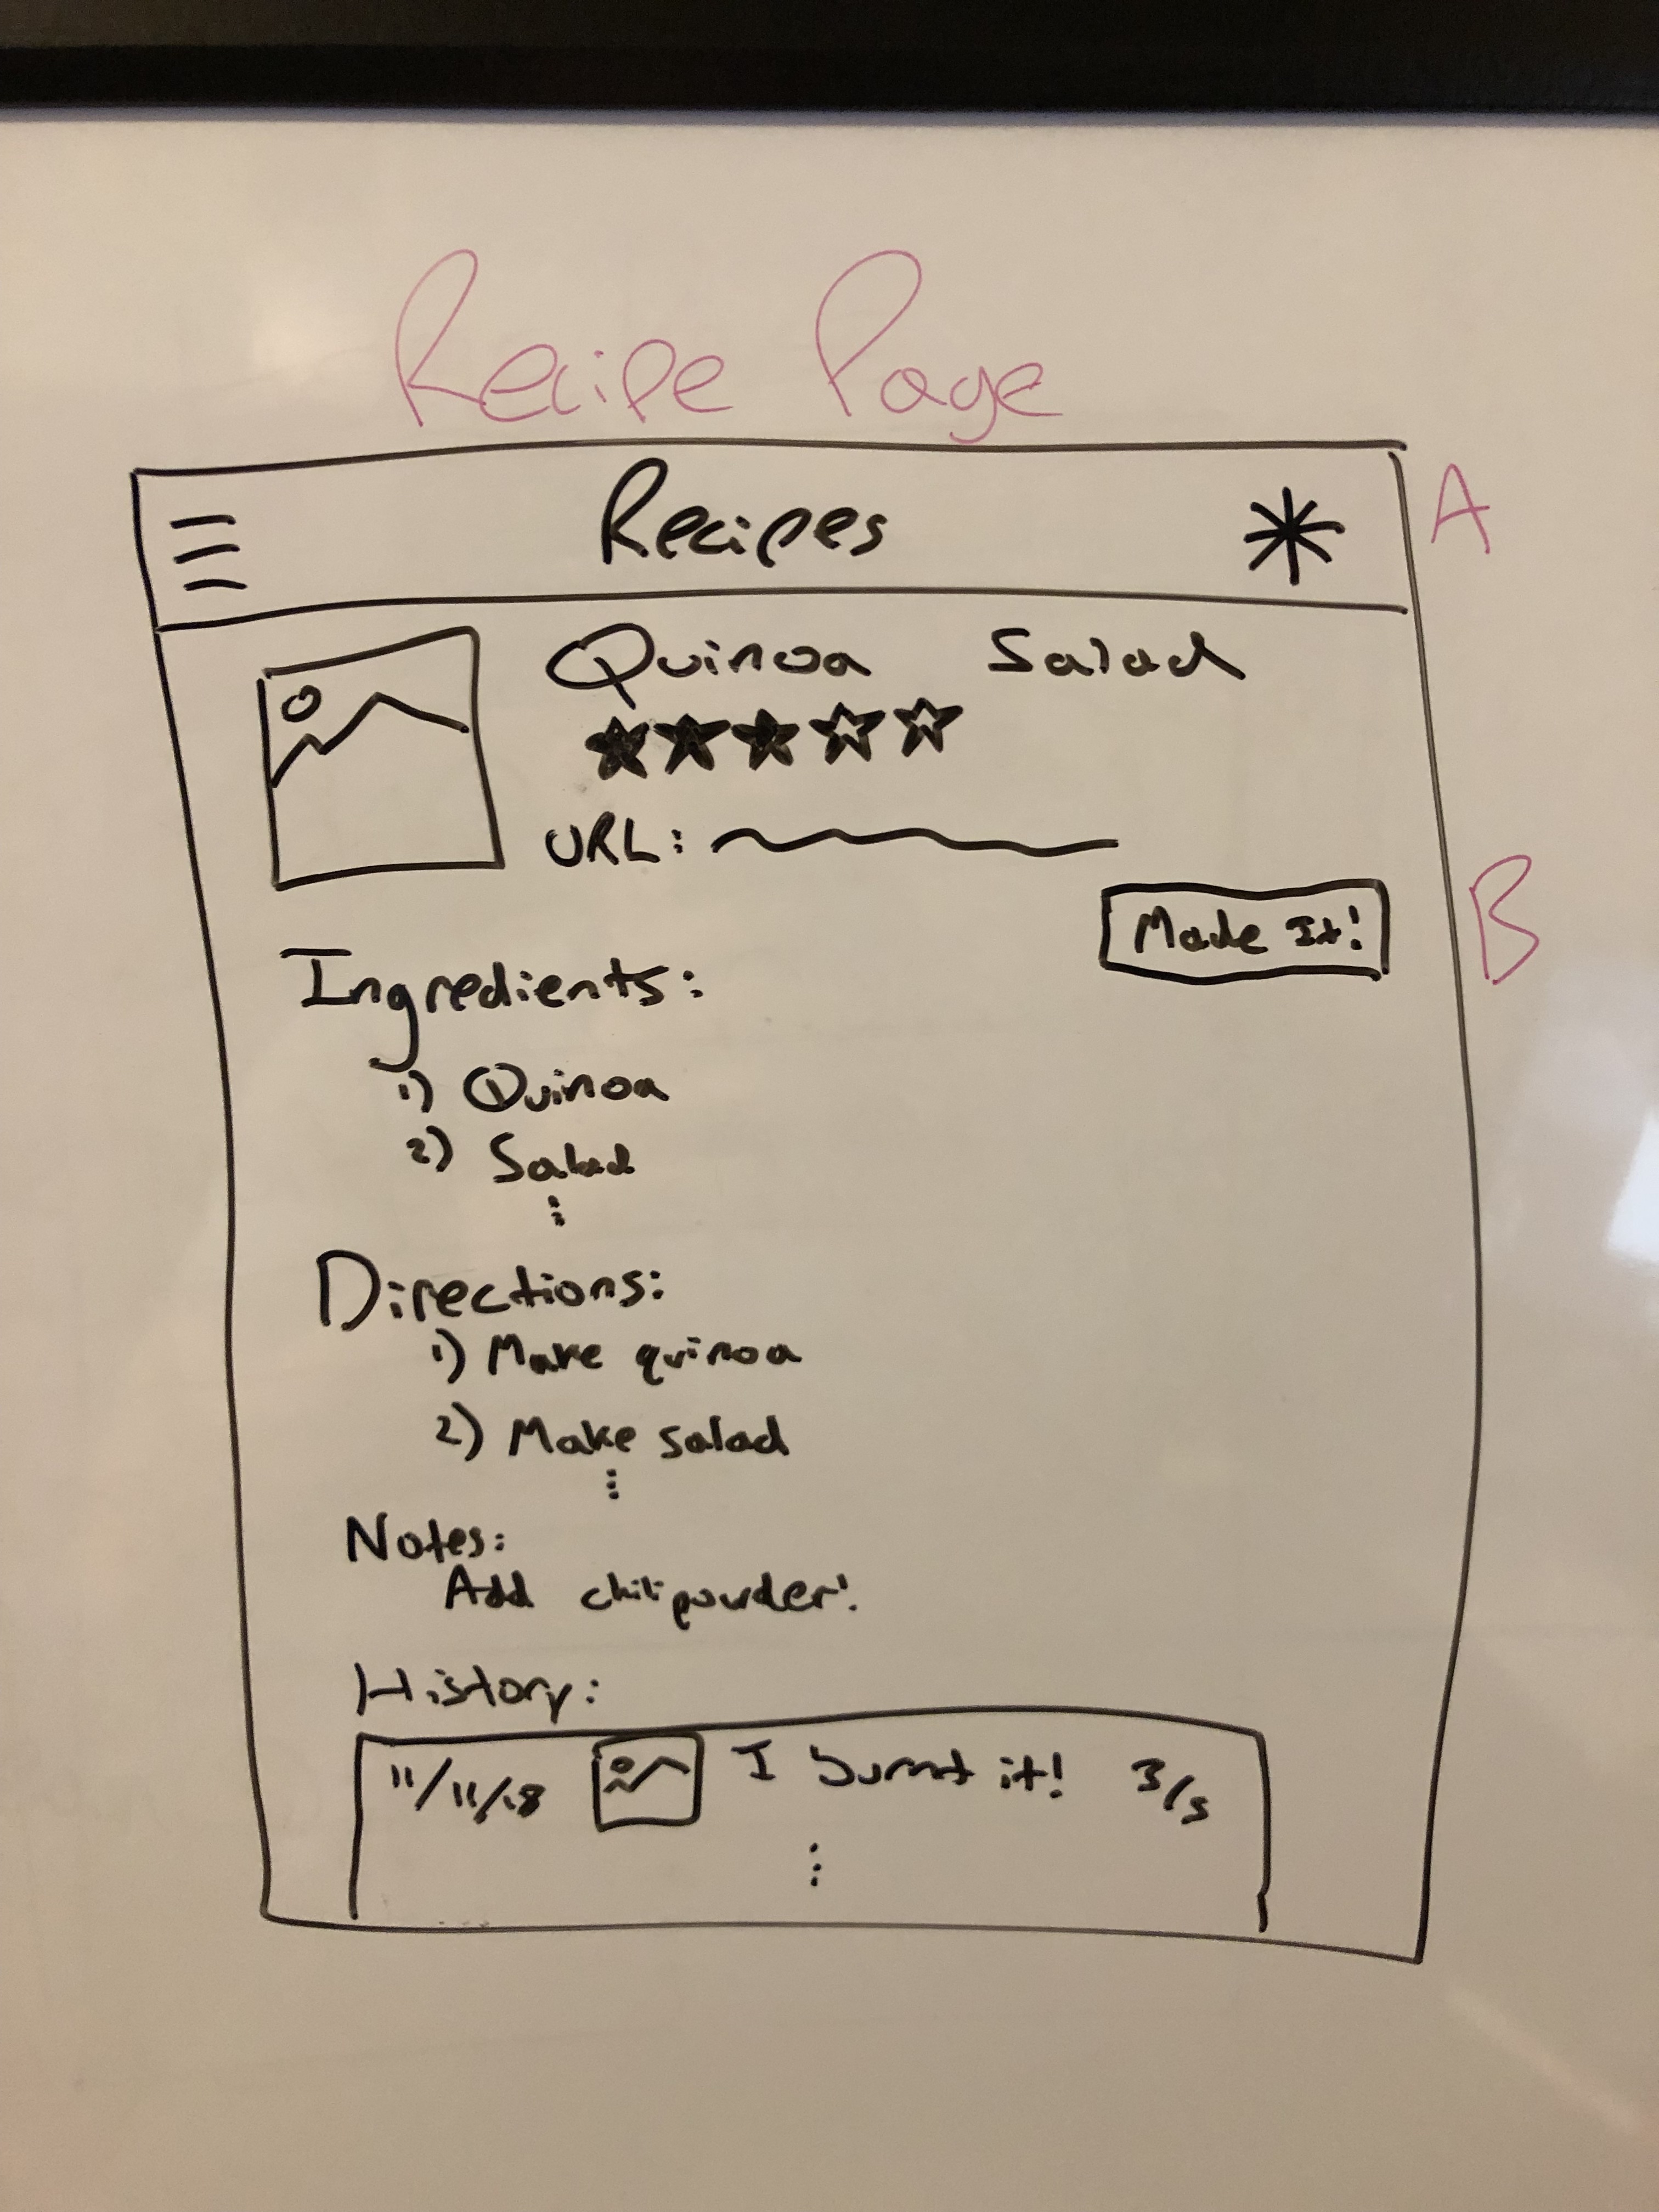 Recipe Page
Recipes
A
Quinoa Salad
URL:
Made It!
B
Ingredients:
1) Quinoa
2) Salad
Directions:
1) Make quinoa
2) Make salad
Notes:
Add chili powder!
History:
11/11/18 I burnt it! 3/5